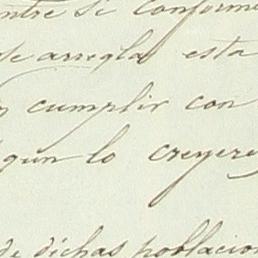 ntre si conforme
se arregla esta
cumplir con
gun lo creyere
de dichas poblacion